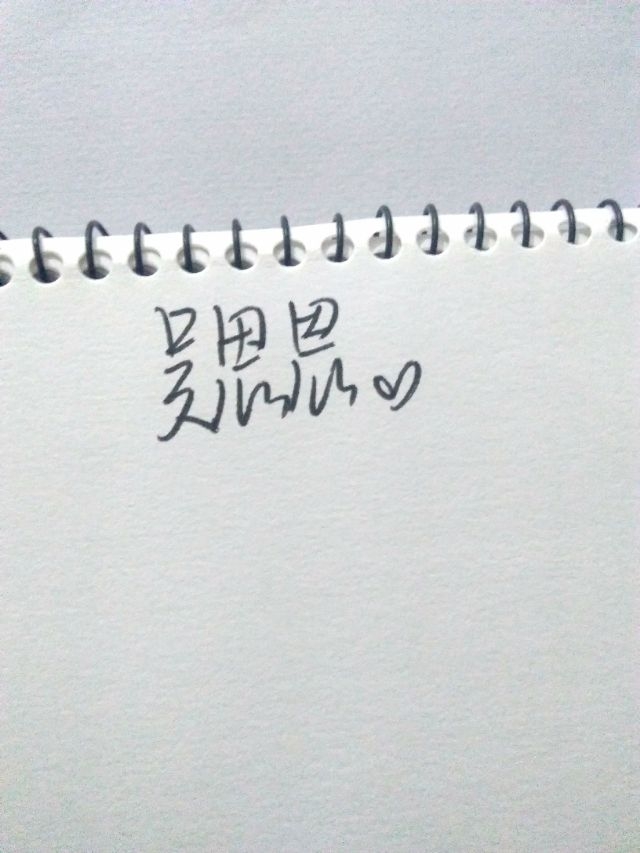 吴思思♡